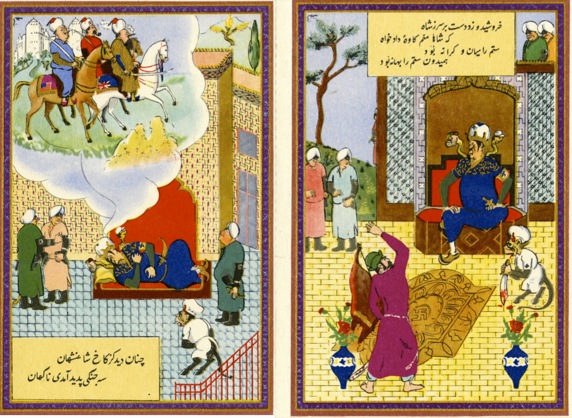 خروشید و زد دست بر سر ز شاه
که شاها منم کاوه دادخواه
ستم را میان و کرانه بود
همیدون ستم را بهانه بود
چنان دید کز کاخ شاهنشهان
سه جنگی پدید آمدی ناگهان